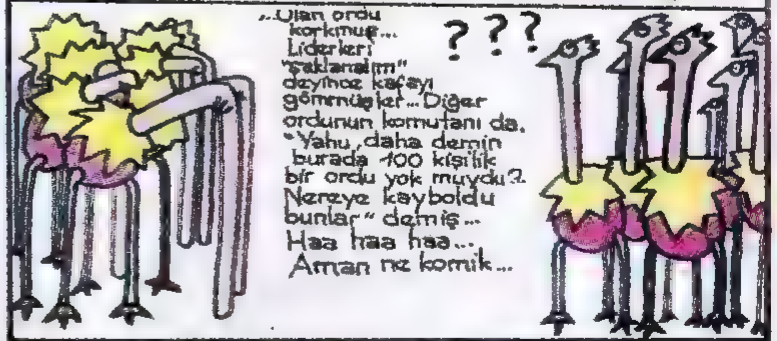 „Olan ordu
korkmuş...
Liderleri
"saklanalım"
deyince kafayı
gömmüşler... Diğer
ordunun komutanı da,
"Yahu, daha demin
burada 100 kişilik
bir ordu yok muydu?
Nereye kayboldu
bunlar" demiş...
Haa haa haa...
Aman ne komik...
? ? ?